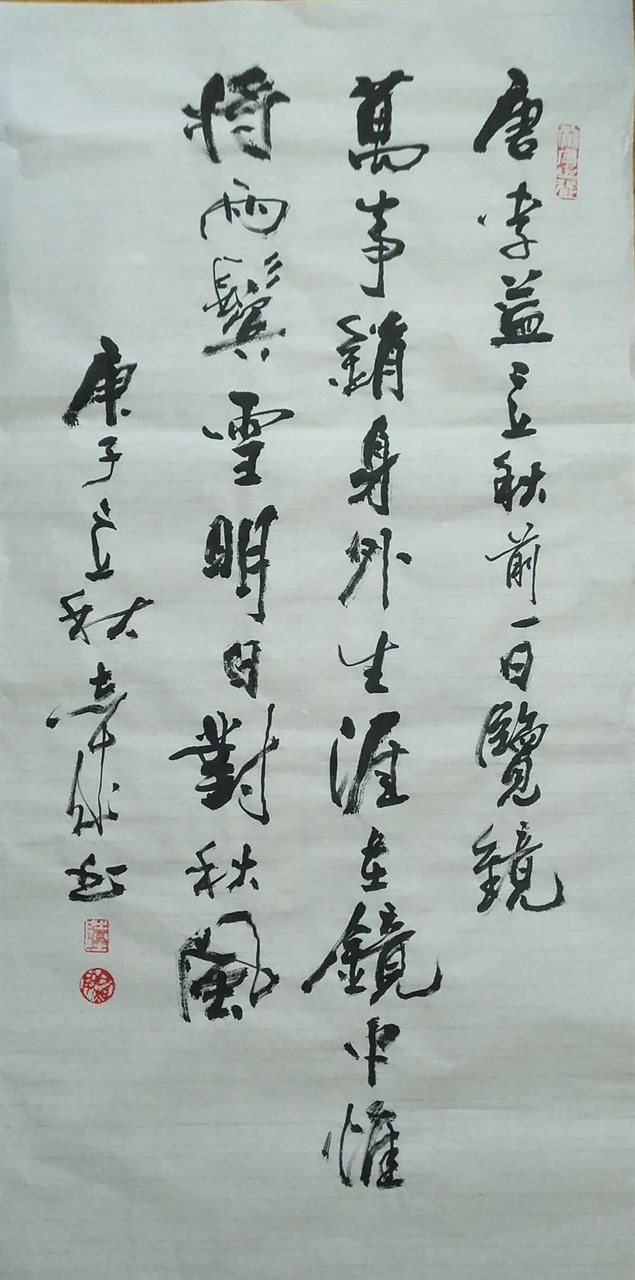 唐李益立秋前一日覽鏡
萬事銷身外生涯在鏡中惟
將兩鬢雪明日對秋風
庚子立秋